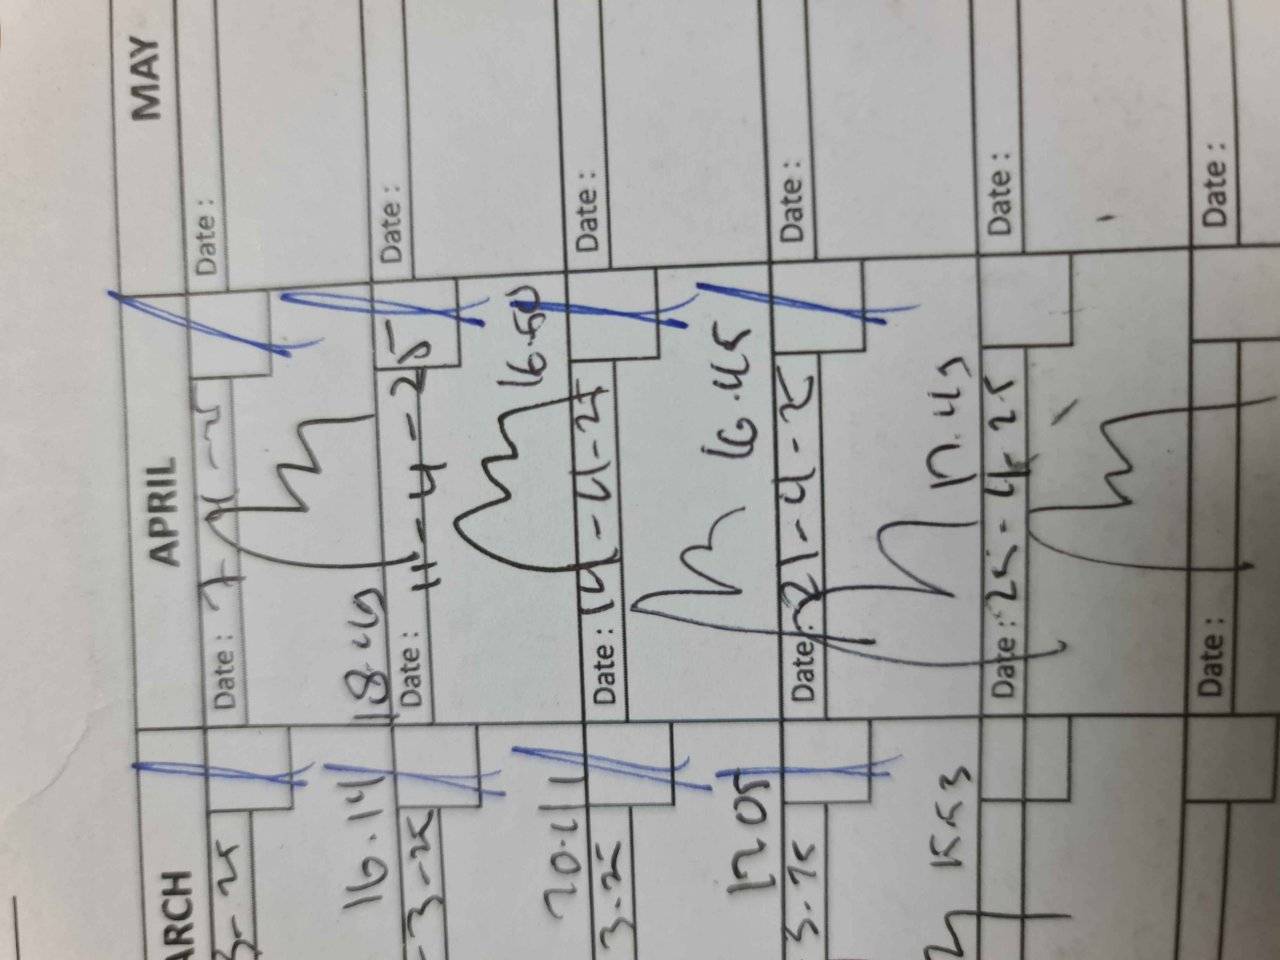 ARCH APRIL MAY
3-25 Date : 7-4-25 Date :
16.14 18.45
-3-25 Date : 11-4-25 Date :
20.11 16.50
3.25 Date : 14-4-25 Date :
17.05 16.45
3.25 Date : 21-4-25 Date :
17.45
Date : 25-4-25 Date :
Date : Date :